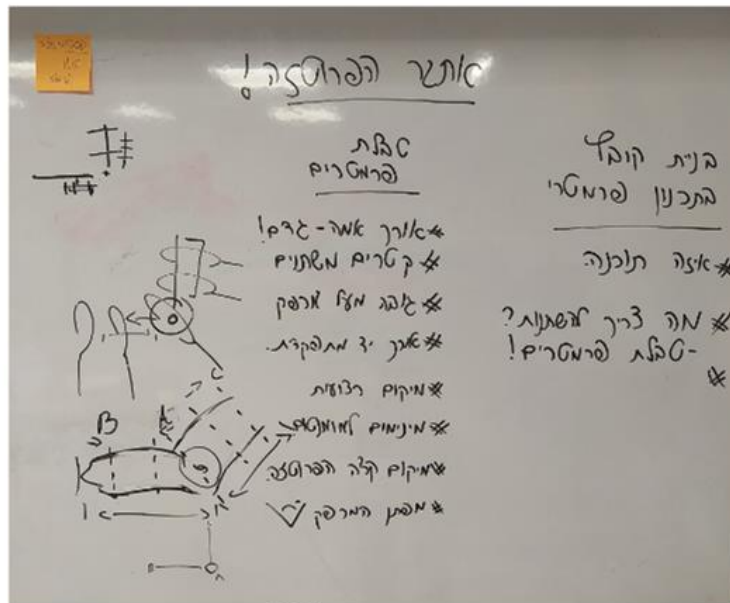 אתגר הפרוטזה!
בניית קובץ
בתכנון פרמטרי
* איזה תוכנה?
* מה צריך להשתנות?
- טבלת פרמטרים!
*
טבלת
פרמטרים
* אורך אמה - גדם!
* קטרים משתנים
* גובה מעל מרפק
* אורך יד מתפקדת.
* מיקום רצועות
* מינימים למומנטים
* מיקום קצה הפרוטזה.
* מפתן המרפק
B
A